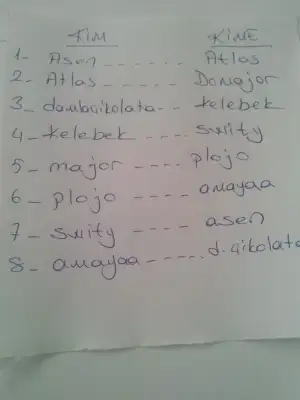 KİM KİME
1- Asen ------ Atlas
2- Atlas ----- Domajor
3- dambikolata-- kelebek
4- kelebek ---- swity
5- major ---- plojo
6- plojo ---- amayaa
7- swity ---- asen
8- amayaa ----- d.çikolata